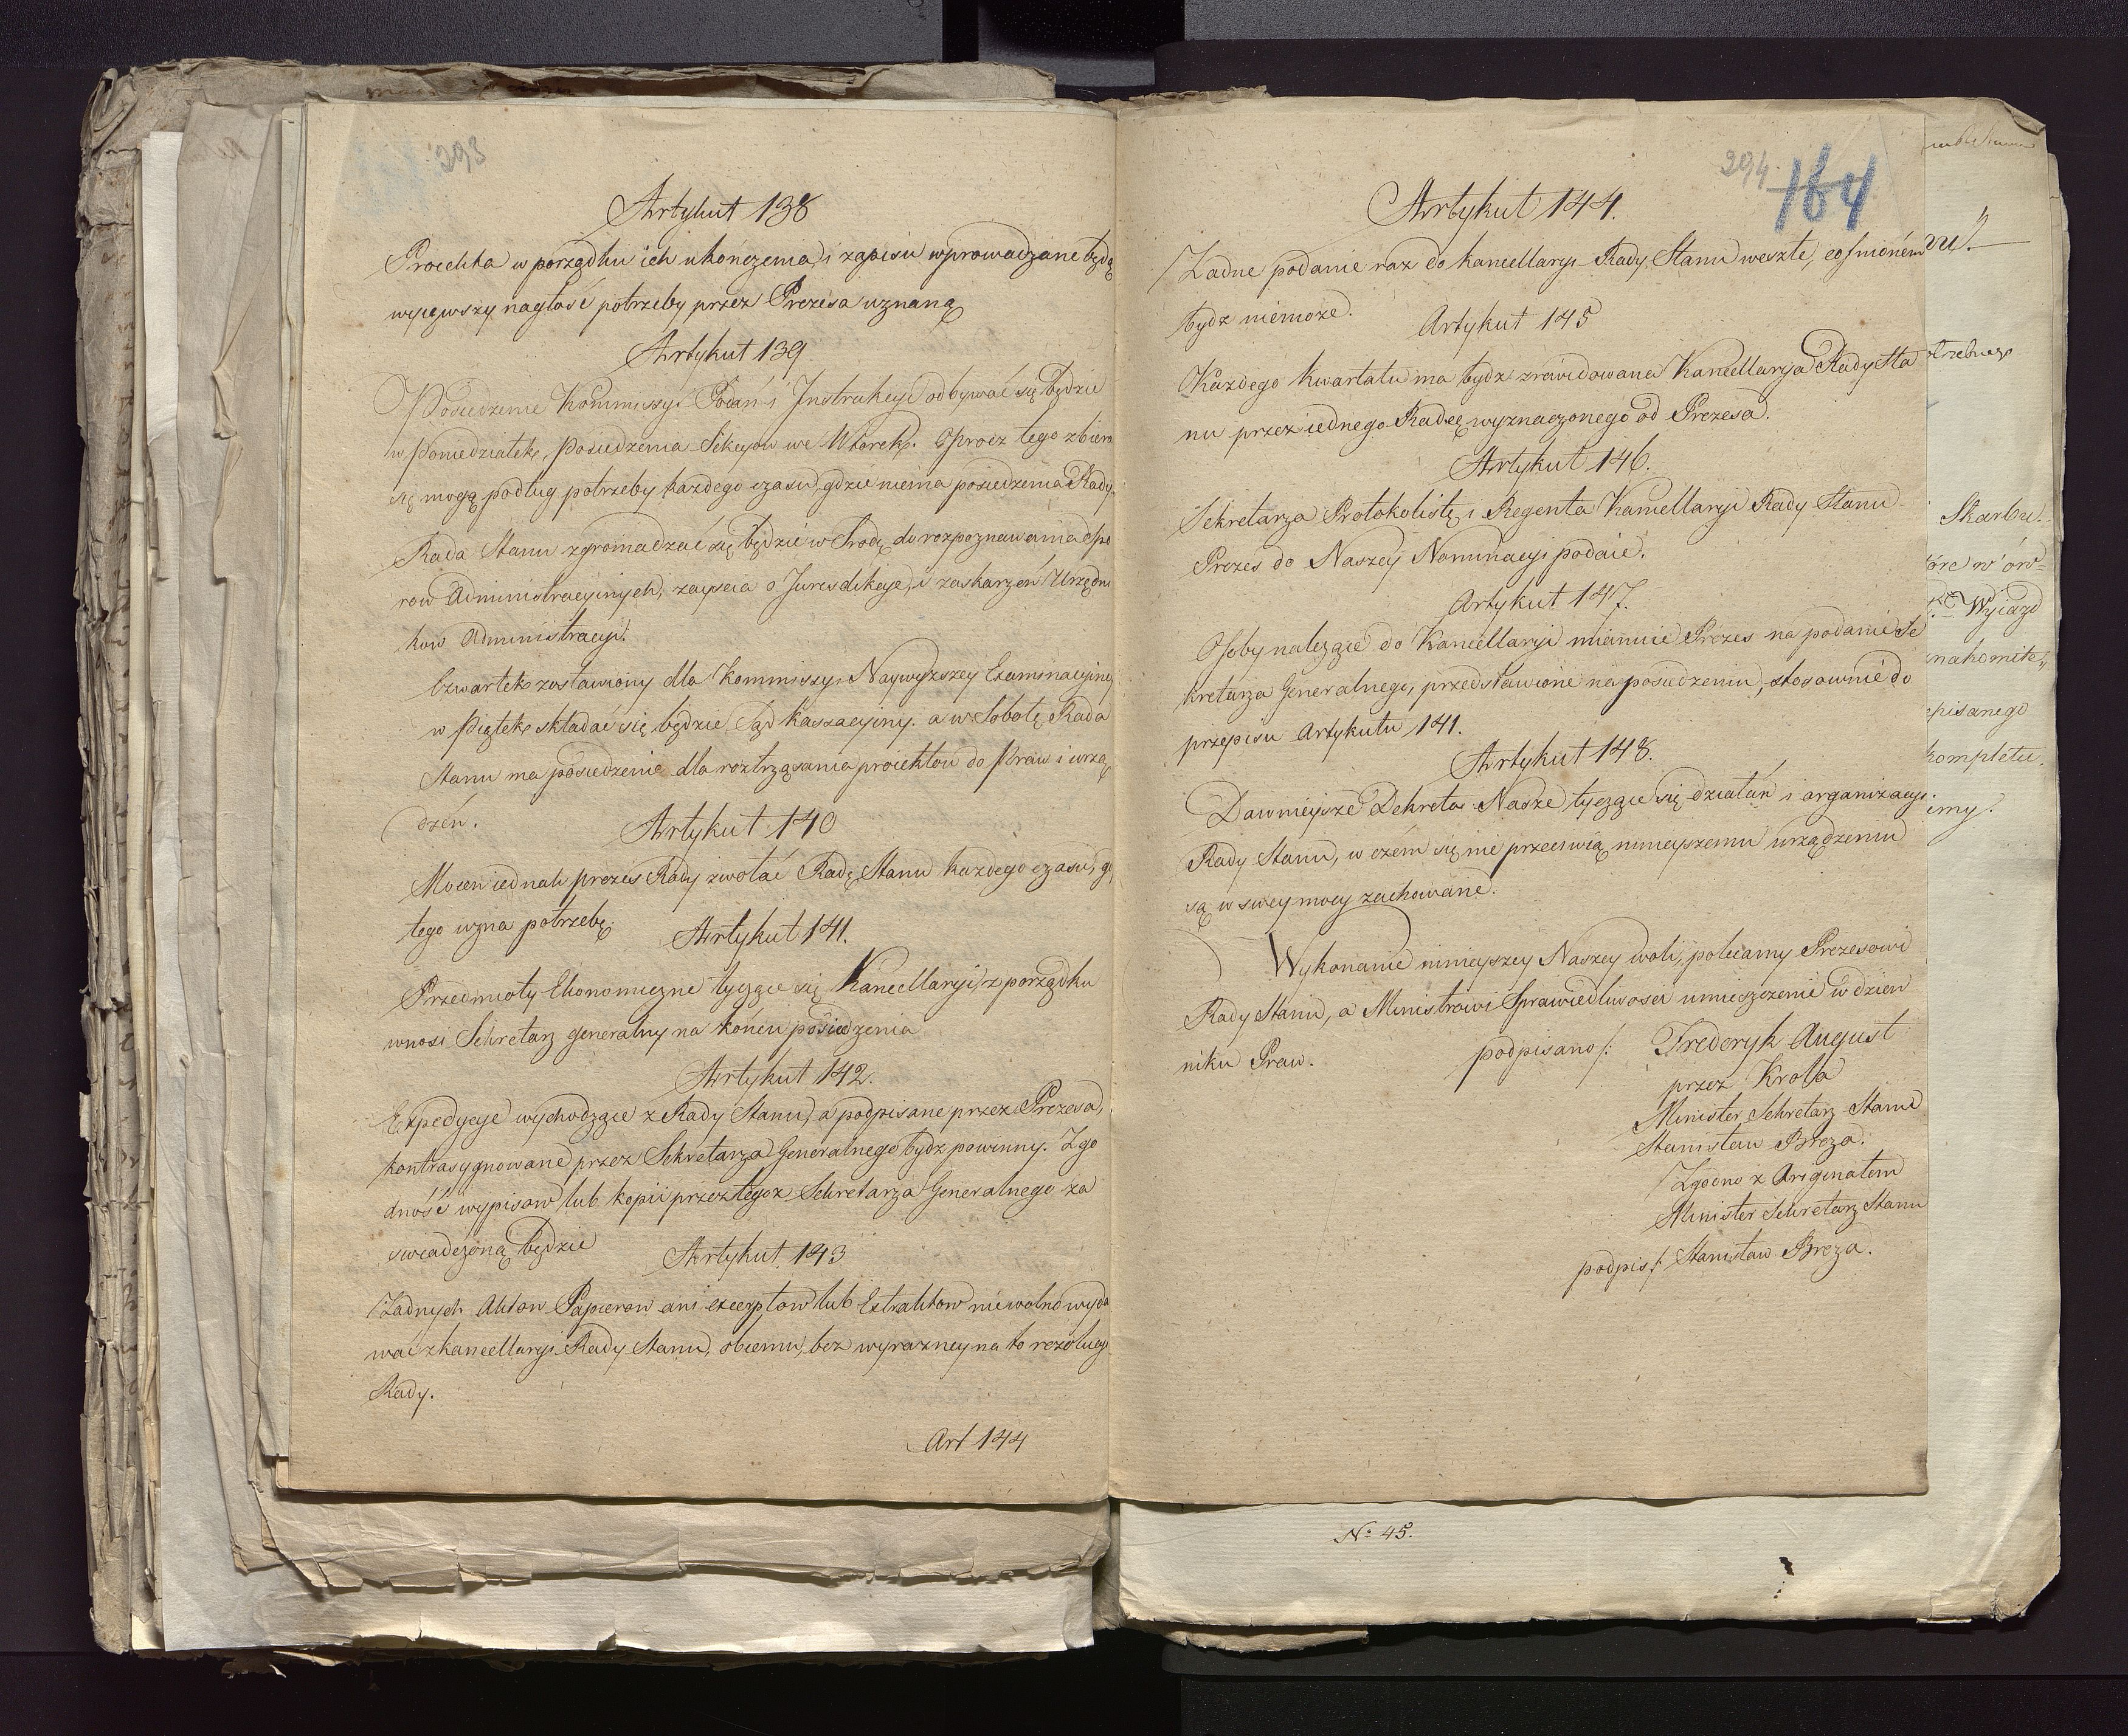 293
Artykuł 138
Proiekta w porządku ich ukończenia, i zapisu wprowadzane będą
wyiąwszy nagłość potrzeby przez Prezesa uznaną
Artykuł 139
Posiedzenie Kommissyi Podań i Instrukcyi odbywać się będzie
w Poniedziałek, Posiedzenia Sekcyow we Wtorek. Oprocz tego zbiera
się mogą podług potrzeby każdego czasu, gdzie niema posiedzenia Rady.
Rada Stanu zgromadzać się będzie w Srodę do rozpoznawania Spo
row Administracyinych, zayscia o Jurisdikcye, i zaskarzeń Urzędni
kow Administracyi.
Czwartek zostawiony dla Kommissyi Naywyższey Examinacyiney
w Piątek składać się będzie Sąd Kassacyiny. a w Sobotę Rada
Stanu ma posiedzenie dla roztrząsania proiektow do Praw i urzą
dzeń.
Artykuł 140
Mocen iednak prezes Rady zwołać Radę Stanu każdego czasu, gdy
tego uzna potrzebę.
Artykuł 141.
Przedmioty Ekonomiczne tyczące się Kancellaryi, z porządku
wnosi Sekretarz generalny na końcu posiedzenia
Artykuł 142.
Expedycye wychodzące z Rady Stanu, a podpisane przez Prezesa,
kontrasygnowane przez Sekretarza Generalnego bydz powinny. Zgo
dność wypisow lub kopii przez tegoz Sekretarza Generalnego za
swiadczoną będzie
Artykuł. 143
Zadnych Aktow Papierow ani excerptow lub Extraktow niewolno wyda
wać z kancellaryi Rady Stanu, obcemu, bez wyrazney na to rezolucyi
Rady.
Art 144
294 164
Artykuł 144.
Zadne podanie raz do kancellaryi Rady Stanu weszłe, cofnionem
bydz niemoże.
Artykuł 145
Każdego kwartału ma bydz zrewidowana Kancellarya Rady Sta
nu przez iednego Radcę wyznaczonego od Prezesa.
Artykuł 146.
Sekretarza Protokolistę i Regenta Kancellaryi Rady Stanu
Prezes do Naszey Nominacyi podaie.
Artykuł 147.
Osoby należące do Kancellaryi mianuie Prezes na podanie Se
kretarza Generalnego, przedstawione na posiedzeniu, stosownie do
przepisu Artykułu 141.
Artykuł 148.
Dawnieysze Dekreta Nasze tyczące się działań i organizacyi
Rady Stanu, w czém się nie przeciwią ninieyszemu urządzeniu
są w swey mocy zachowane.
Wykonanie ninieyszey Naszey woli, polecamy Prezesowi
Rady Stanu, a Ministrowi Sprawiedliwości umieszczenie w dzien
niku Praw.
podpisano /: Frederyk August
przez Krola
Minister Sekretarz Stanu
Stanisław Breza.
Zgodno z Originałem
Minister Sekretarz Stanu
podpis /: Stanisław Breza.
Skarbu.
Wyiazd
znakomite
kompletu.
No 45.